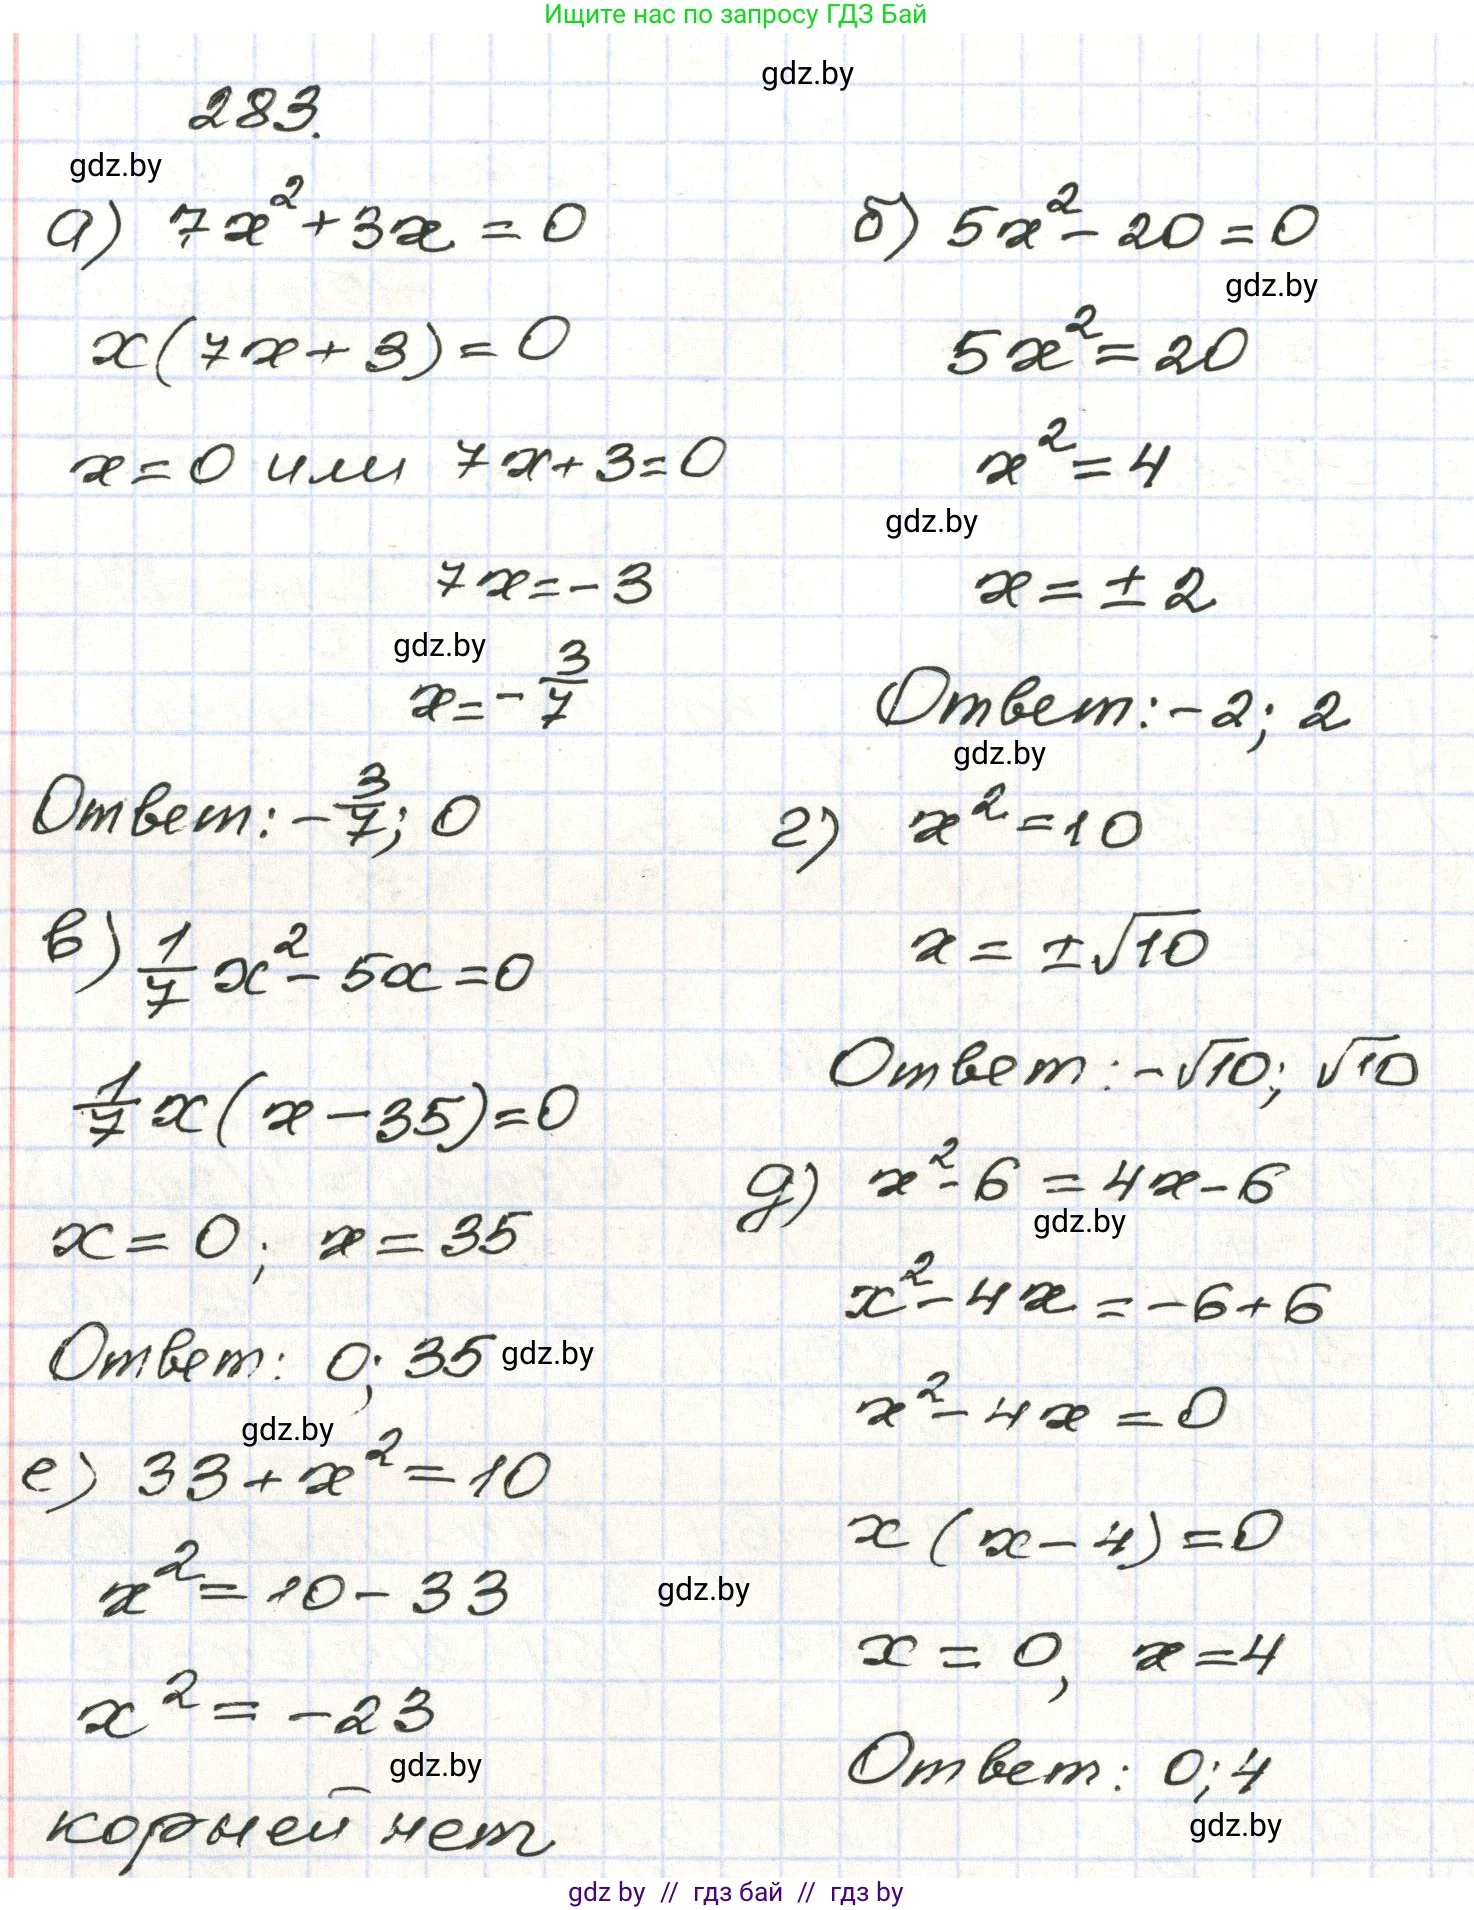 Ищите нас по запросу ГДЗ Бай
gdz.by
283.
gdz.by
а) 7x² + 3x = 0
x(7x + 3) = 0
x = 0 или 7x + 3 = 0
7x = -3
gdz.by
x = -3/7
Ответ: -3/7; 0
б) 5x² - 20 = 0
gdz.by
5x² = 20
x² = 4
gdz.by
x = ± 2
Ответ: -2; 2
gdz.by
в) 1/7 x² - 5x = 0
1/7 x(x - 35) = 0
x = 0; x = 35
Ответ: 0; 35 gdz.by
г) x² = 10
x = ±√10
Ответ: -√10; √10
д) x² - 6 = 4x - 6
gdz.by
x² - 4x = -6 + 6
x² - 4x = 0
x (x - 4) = 0
x = 0, x = 4
Ответ: 0; 4
gdz.by
gdz.by
е) 33 + x² = 10
x² = 10 - 33
gdz.by
x² = -23
gdz.by
корней нет
gdz by // гдз бай // гдз by